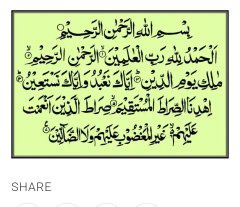 بِسْمِ اللهِ الرَّحْمٰنِ الرَّحِيْمِ
اَلْحَمْدُ لِلّٰهِ رَبِّ الْعٰلَمِيْنَ الرَّحْمٰنِ الرَّحِيْمِ
مٰلِكِ يَوْمِ الدِّيْنِ اِيَّاكَ نَعْبُدُ وَاِيَّاكَ نَسْتَعِيْنُ
اِهْدِنَا الصِّرَاطَ الْمُسْتَقِيْمَ صِرَاطَ الَّذِيْنَ اَنْعَمْتَ
عَلَيْهِمْ غَيْرِ الْمَغْضُوْبِ عَلَيْهِمْ وَلَا الضَّآلِّيْنَ
SHARE